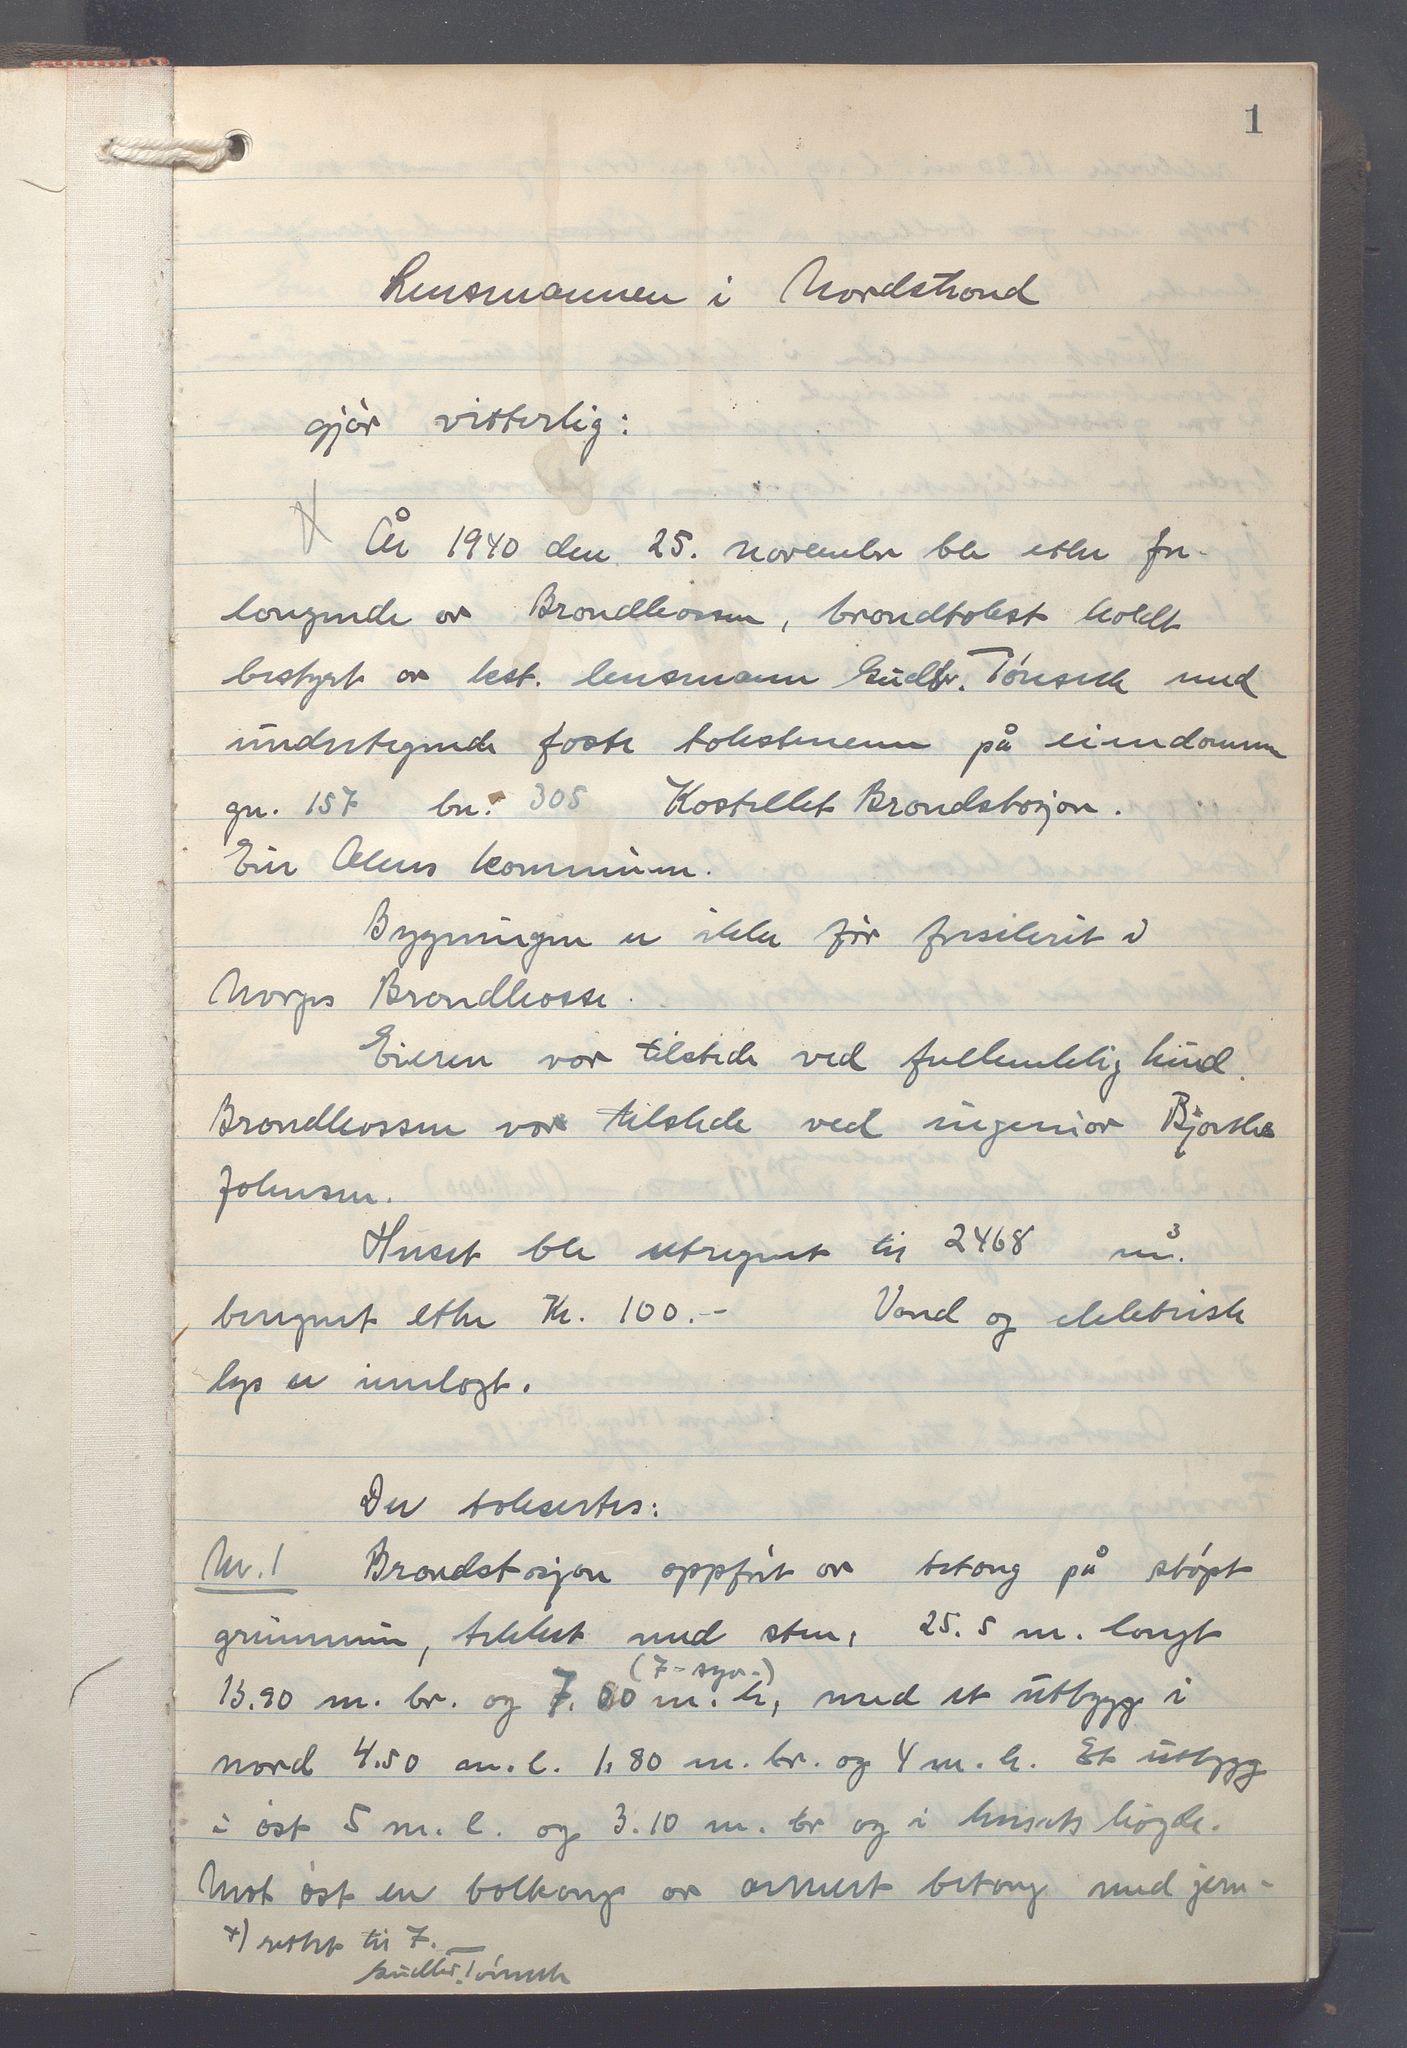 1
Lensmannen i Nordstrand
gjør vitterlig:
År 1940 den 25. november ble etter for-
langende av Brandkassen, brandtakst holdt
bestyrt av kst. lensmann Gudbr. Tønseth med
undertegnede faste takstmenn på eiendommen
gn. 157 bn. 305 Kastellet Brandstasjon.
Eier Akers kommune.
Bygningen er ikke før forsikret i
Norges Brandkasse.
Eieren var tilstede ved fullmektig Lund.
Brandkassen var tilstede ved ingeniør Bjarthes
Johnsen.
Huset ble utregnet til 2468 m³.
beregnet etter Kr. 100.- Vand og elektrisk
lys er innlagt.
Der takseres:
Nr. 1 Brandstasjon oppført av betong på støpt
grunnmur, tekket med sten, 25.5 m. langt
(7-syv-)
13.90 m. br. og 7.00 m. h, med et utbygg i
nord 4.50 m. l. 1.80 m. br. og 4 m. h. Et utbygg
i øst 5 m. l. og 3.10 m. br og i husets høgde.
Mot øst en balkong av armert betong med jern-
+) rettet til 7.
Gudbr. Tønseth